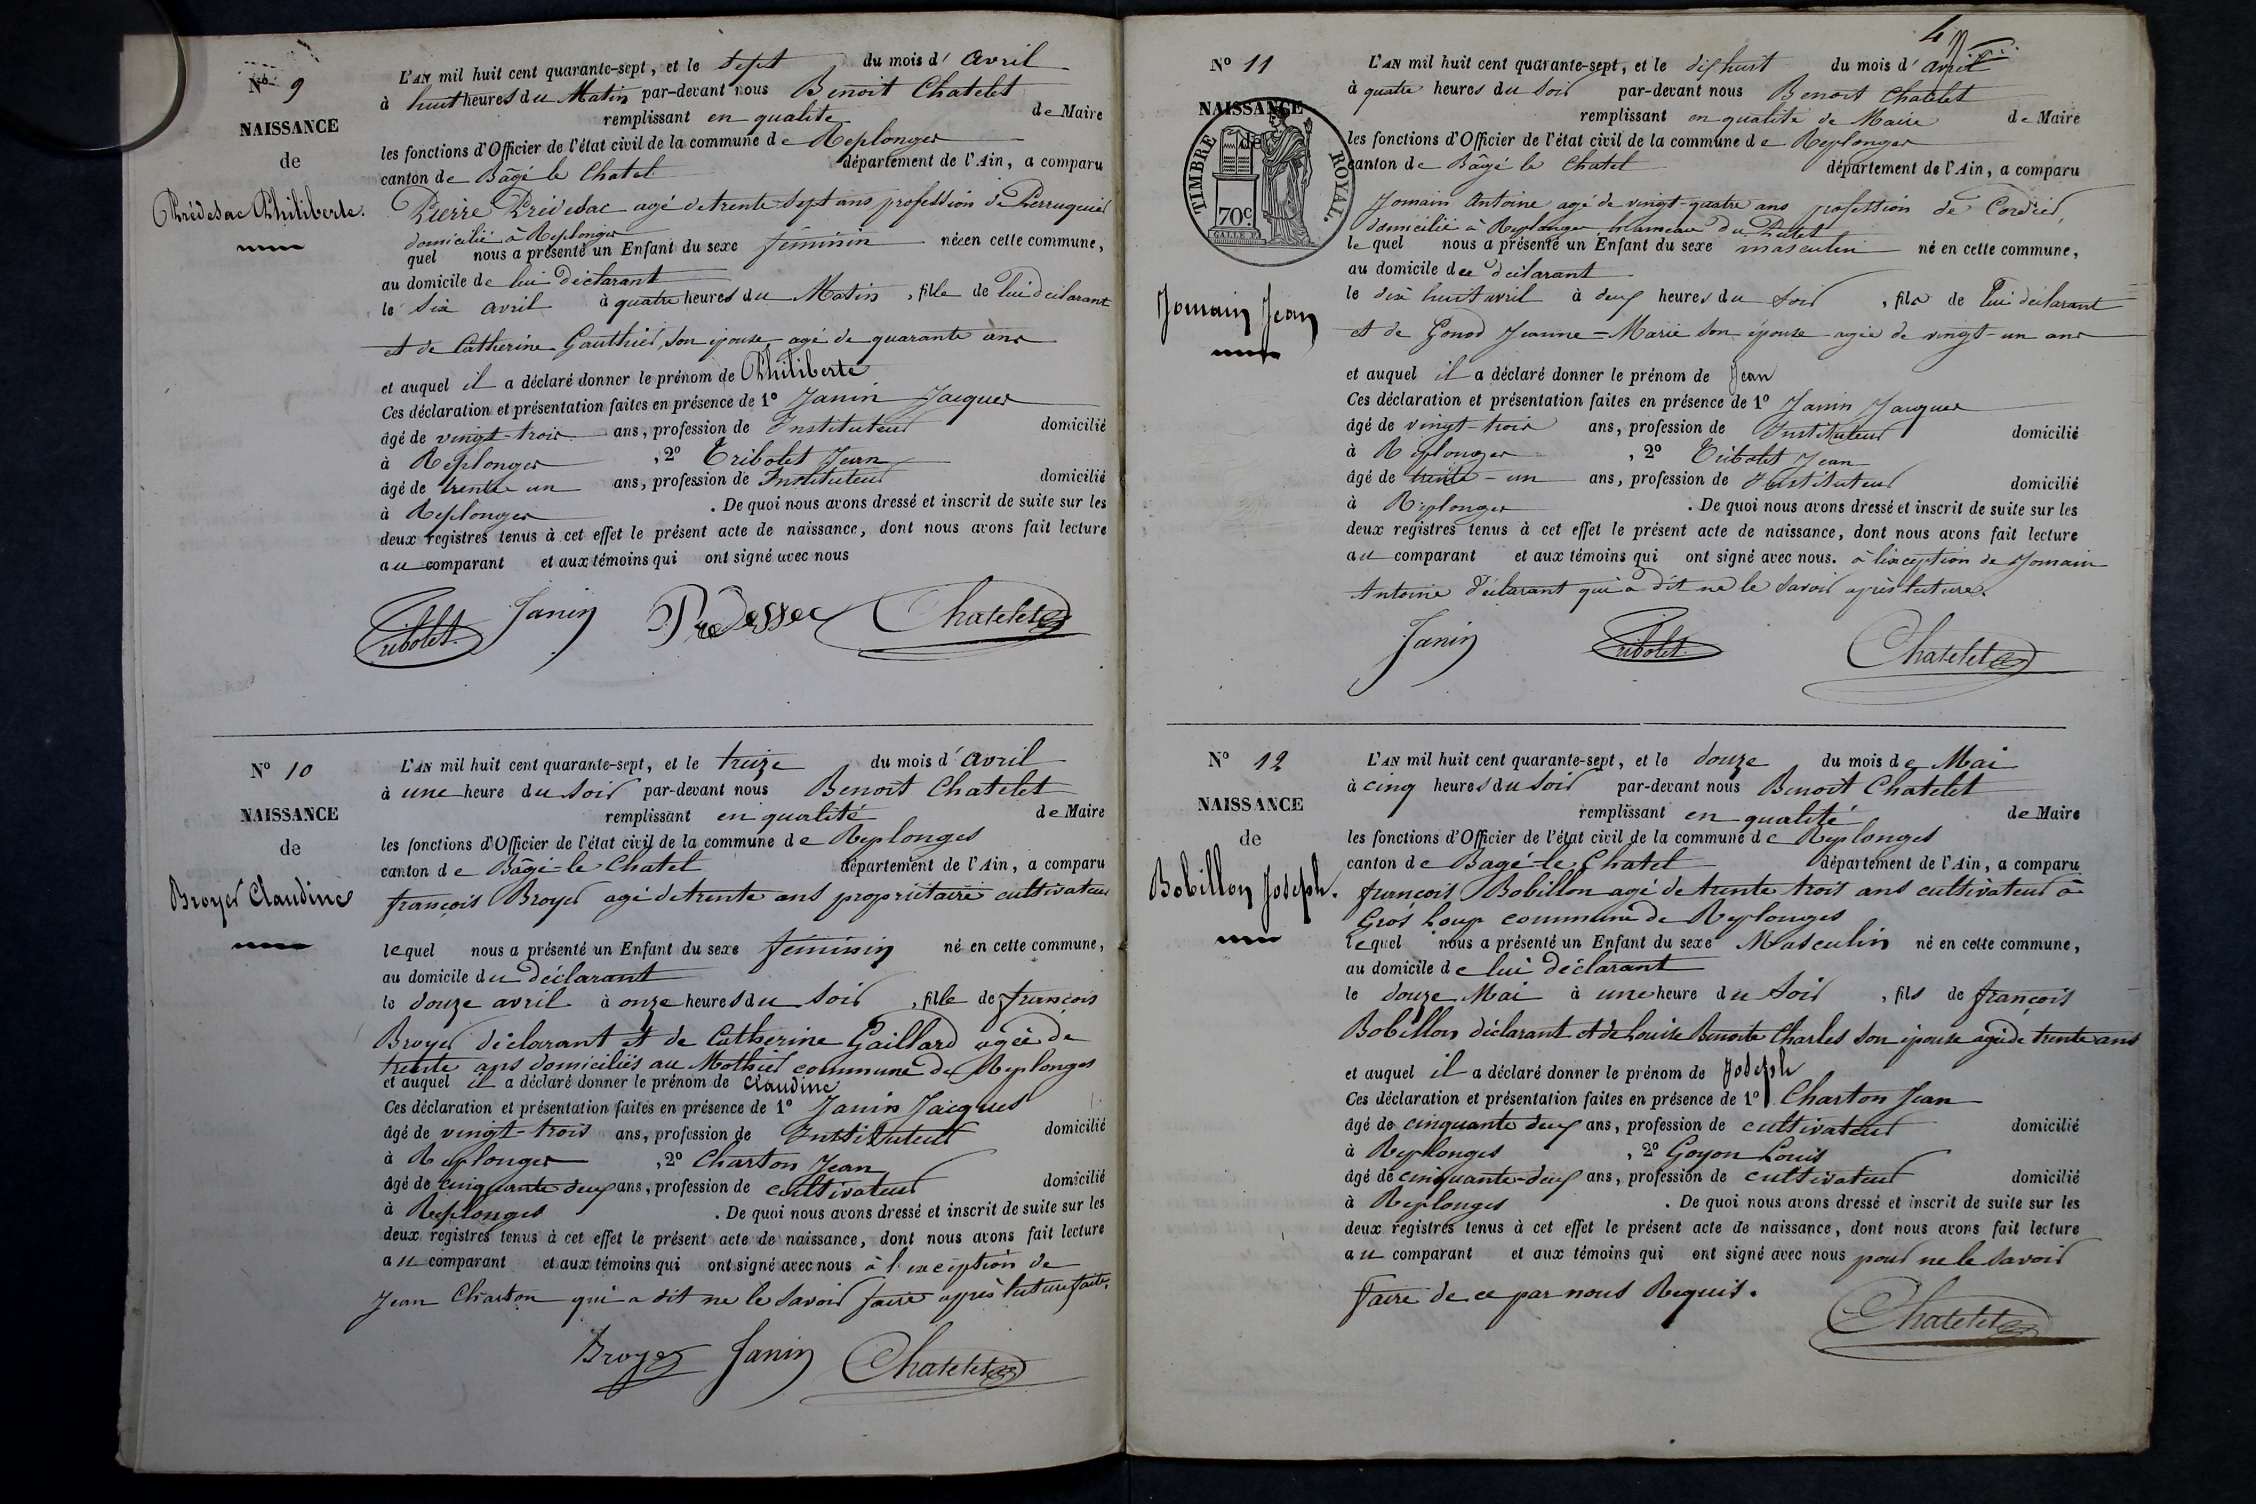 Nº 9
NAISSANCE
de
Prédesac Philiberte.
L'AN mil huit cent quarante-sept, et le sept du mois d'avril
à huit heures du Matin par-devant nous Benoit Chatelet
remplissant en qualité de Maire
les fonctions d'Officier de l'état civil de la commune de Replonges
canton de Bâgé le Chatel département de l'Ain, a comparu
Pierre Prédesac agé de trente-sept ans profession de Perruquier
domicilié à Replonges
quel nous a présenté un Enfant du sexe féminin née en cette commune,
au domicile de lui déclarant
le six avril à quatre heures du Matin, fille de lui déclarant
et de Catherine Gauthier, son épouse agé de quarante ans
et auquel il a déclaré donner le prénom de Philiberte
Ces déclaration et présentation faites en présence de 1º Janin Jacques
âgé de vingt-trois ans, profession de Instituteur domicilié
à Replonges, 2º Tribolet Jean
âgé de trente un ans, profession de Instituteur domicilié
à Replonges. De quoi nous avons dressé et inscrit de suite sur les
deux registres tenus à cet effet le présent acte de naissance, dont nous avons fait lecture
au comparant et aux témoins qui ont signé avec nous
Tribolet Janin Predessac Chatelet
Nº 10
NAISSANCE
de
Broyer Claudine
L'AN mil huit cent quarante-sept, et le treize du mois d'avril
à une heure du soir par-devant nous Benoit Chatelet
remplissant en qualité de Maire
les fonctions d'Officier de l'état civil de la commune de Replonges
canton de Bâgé-le-Chatel département de l'Ain, a comparu
françois Broyer agé de trente ans propriétaire cultivateur
lequel nous a présenté un Enfant du sexe féminin né en cette commune,
au domicile du déclarant
le douze avril à onze heures du soir, fille de françois
Broyer déclarant et de Catherine Gaillard agée de
trente ans domiciliés au Mothier commune de Replonges
et auquel il a déclaré donner le prénom de Claudine
Ces déclaration et présentation faites en présence de 1º Janin Jacques
âgé de vingt-trois ans, profession de Instituteur domicilié
à Replonges, 2º Charton Jean
âgé de cinquante deux ans, profession de cultivateur domicilié
à Replonges. De quoi nous avons dressé et inscrit de suite sur les
deux registres tenus à cet effet le présent acte de naissance, dont nous avons fait lecture
au comparant et aux témoins qui ont signé avec nous à l'exception de
Jean Charton qui a dit ne le savoir faire après lecture faite.
Broyer Janin Chatelet
4
Nº 11
NAISSANCE
de
TIMBRE ROYAL.
70c
Jomain Jean
L'AN mil huit cent quarante-sept, et le dix huit du mois d'avril
à quatre heures du soir par-devant nous Benoit Chatelet
remplissant en qualité de Maire de Maire
les fonctions d'Officier de l'état civil de la commune de Replonges
canton de Bâgé le Chatel département de l'Ain, a comparu
Jomain Antoine agé de vingt-quatre ans profession de Cordier,
domicilié à Replonges hameau du
le quel nous a présenté un Enfant du sexe masculin né en cette commune,
au domicile de déclarant
le dix huit avril à deux heures du soir, fils de lui déclarant
et de Gonod Jeanne-Marie son épouse agée de vingt-un ans
et auquel il a déclaré donner le prénom de Jean
Ces déclaration et présentation faites en présence de 1º Janin Jacques
âgé de vingt-trois ans, profession de Instituteur domicilié
à Replonges, 2º Tribolet Jean
âgé de trente-un ans, profession de Instituteur domicilié
à Replonges. De quoi nous avons dressé et inscrit de suite sur les
deux registres tenus à cet effet le présent acte de naissance, dont nous avons fait lecture
au comparant et aux témoins qui ont signé avec nous. à l'exception de Jomain
Antoine déclarant qui a dit ne le savoir après lecture.
Janin Tribolet Chatelet
Nº 12
NAISSANCE
de
Bobillon Joseph.
L'AN mil huit cent quarante-sept, et le douze du mois de Mai
à cinq heures du soir par-devant nous Benoit Chatelet
remplissant en qualité de Maire
les fonctions d'Officier de l'état civil de la commune de Replonges
canton de Bagé-le-Chatel département de l'Ain, a comparu
françois Bobillon agé de trente trois ans cultivateur à
Gros Loup commune de Replonges
lequel nous a présenté un Enfant du sexe Masculin né en cette commune,
au domicile de lui déclarant
le douze Mai à une heure du soir, fils de françois
Bobillon déclarant et de Louise Benoite Charles son épouse agée de trente ans
et auquel il a déclaré donner le prénom de Joseph
Ces déclaration et présentation faites en présence de 1º Charton Jean
âgé de cinquante deux ans, profession de cultivateur domicilié
à Replonges, 2º Goyon Louis
âgé de cinquante-deux ans, profession de cultivateur domicilié
à Replonges. De quoi nous avons dressé et inscrit de suite sur les
deux registres tenus à cet effet le présent acte de naissance, dont nous avons fait lecture
au comparant et aux témoins qui ont signé avec nous pour ne le savoir
faire de ce par nous Requis.
Chatelet